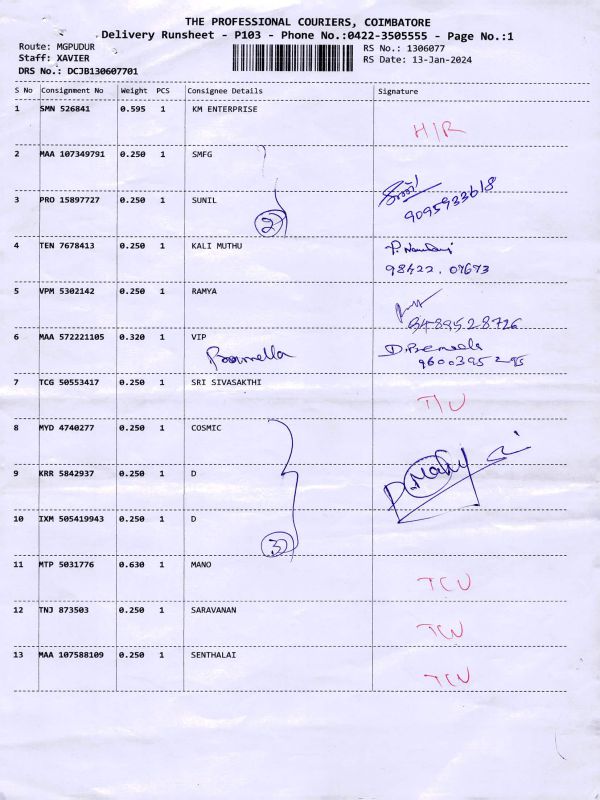 THE PROFESSIONAL COURIERS, COIMBATORE
Delivery Runsheet - P103 - Phone No.:0422-3505555 - Page No.:1
Route: MGPUDUR RS No.: 1306077
Staff: XAVIER RS Date: 13-Jan-2024
DRS No.: DCJB130607701
S No Consignment No Weight PCS Consignee Details Signature
1 SMN 526841 0.595 1 KM ENTERPRISE
H/R
2 MAA 107349791 0.250 1 SMFG
3 PRO 15897727 0.250 1 SUNIL
2 9095933618
4 TEN 7678413 0.250 1 KALI MUTHU
98422.07673
5 VPM 5302142 0.250 1 RAMYA
9489528726
6 MAA 572221105 0.320 1 VIP D.Premeela
9600395295
7 TCG 50553417 0.250 1 SRI SIVASAKTHI
8 MYD 4740277 0.250 1 COSMIC
9 KRR 5842937 0.250 1 D
10 IXM 505419943 0.250 1 D
3
11 MTP 5031776 0.630 1 MANO
TCU
12 TNJ 873503 0.250 1 SARAVANAN
TCU
13 MAA 107588109 0.250 1 SENTHALAI
TCU